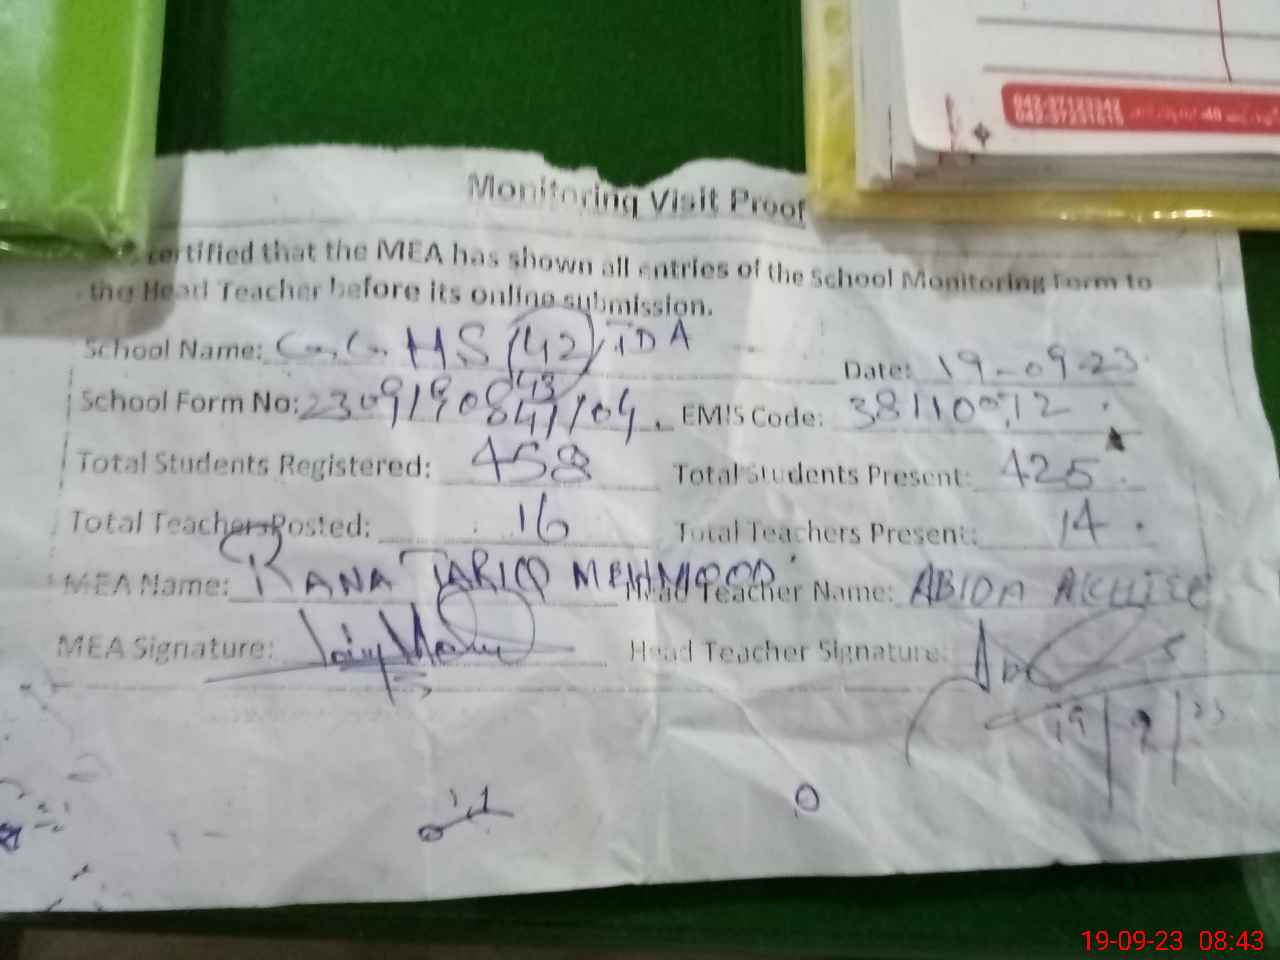 042-37123342
042-37231615
Monitoring Visit Proof
certified that the MEA has shown all entries of the School Monitoring Form to
the Head Teacher before its online submission.
School Name: G.G. HS /42/TDA
Date: 19-09-23
School Form No: 230919084 /04. EMIS Code: 38110072
Total Students Registered: 458 Total Students Present: 425
Total Teachers Posted: 16 Total Teachers Present: 14
MEA Name: RANA TARIQ MEHMOOD Head Teacher Name: ABIDA
MEA Signature: Head Teacher Signature:
19/9/23
19-09-23 08:43